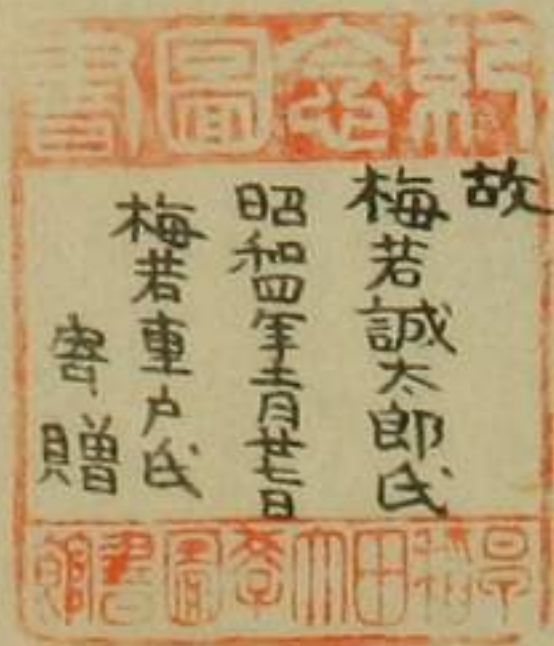 紀念圖書
故
梅若誠太郎氏
昭和四年十二月廿七日
梅若重戸氏
寄贈
早稲田大学圖書館